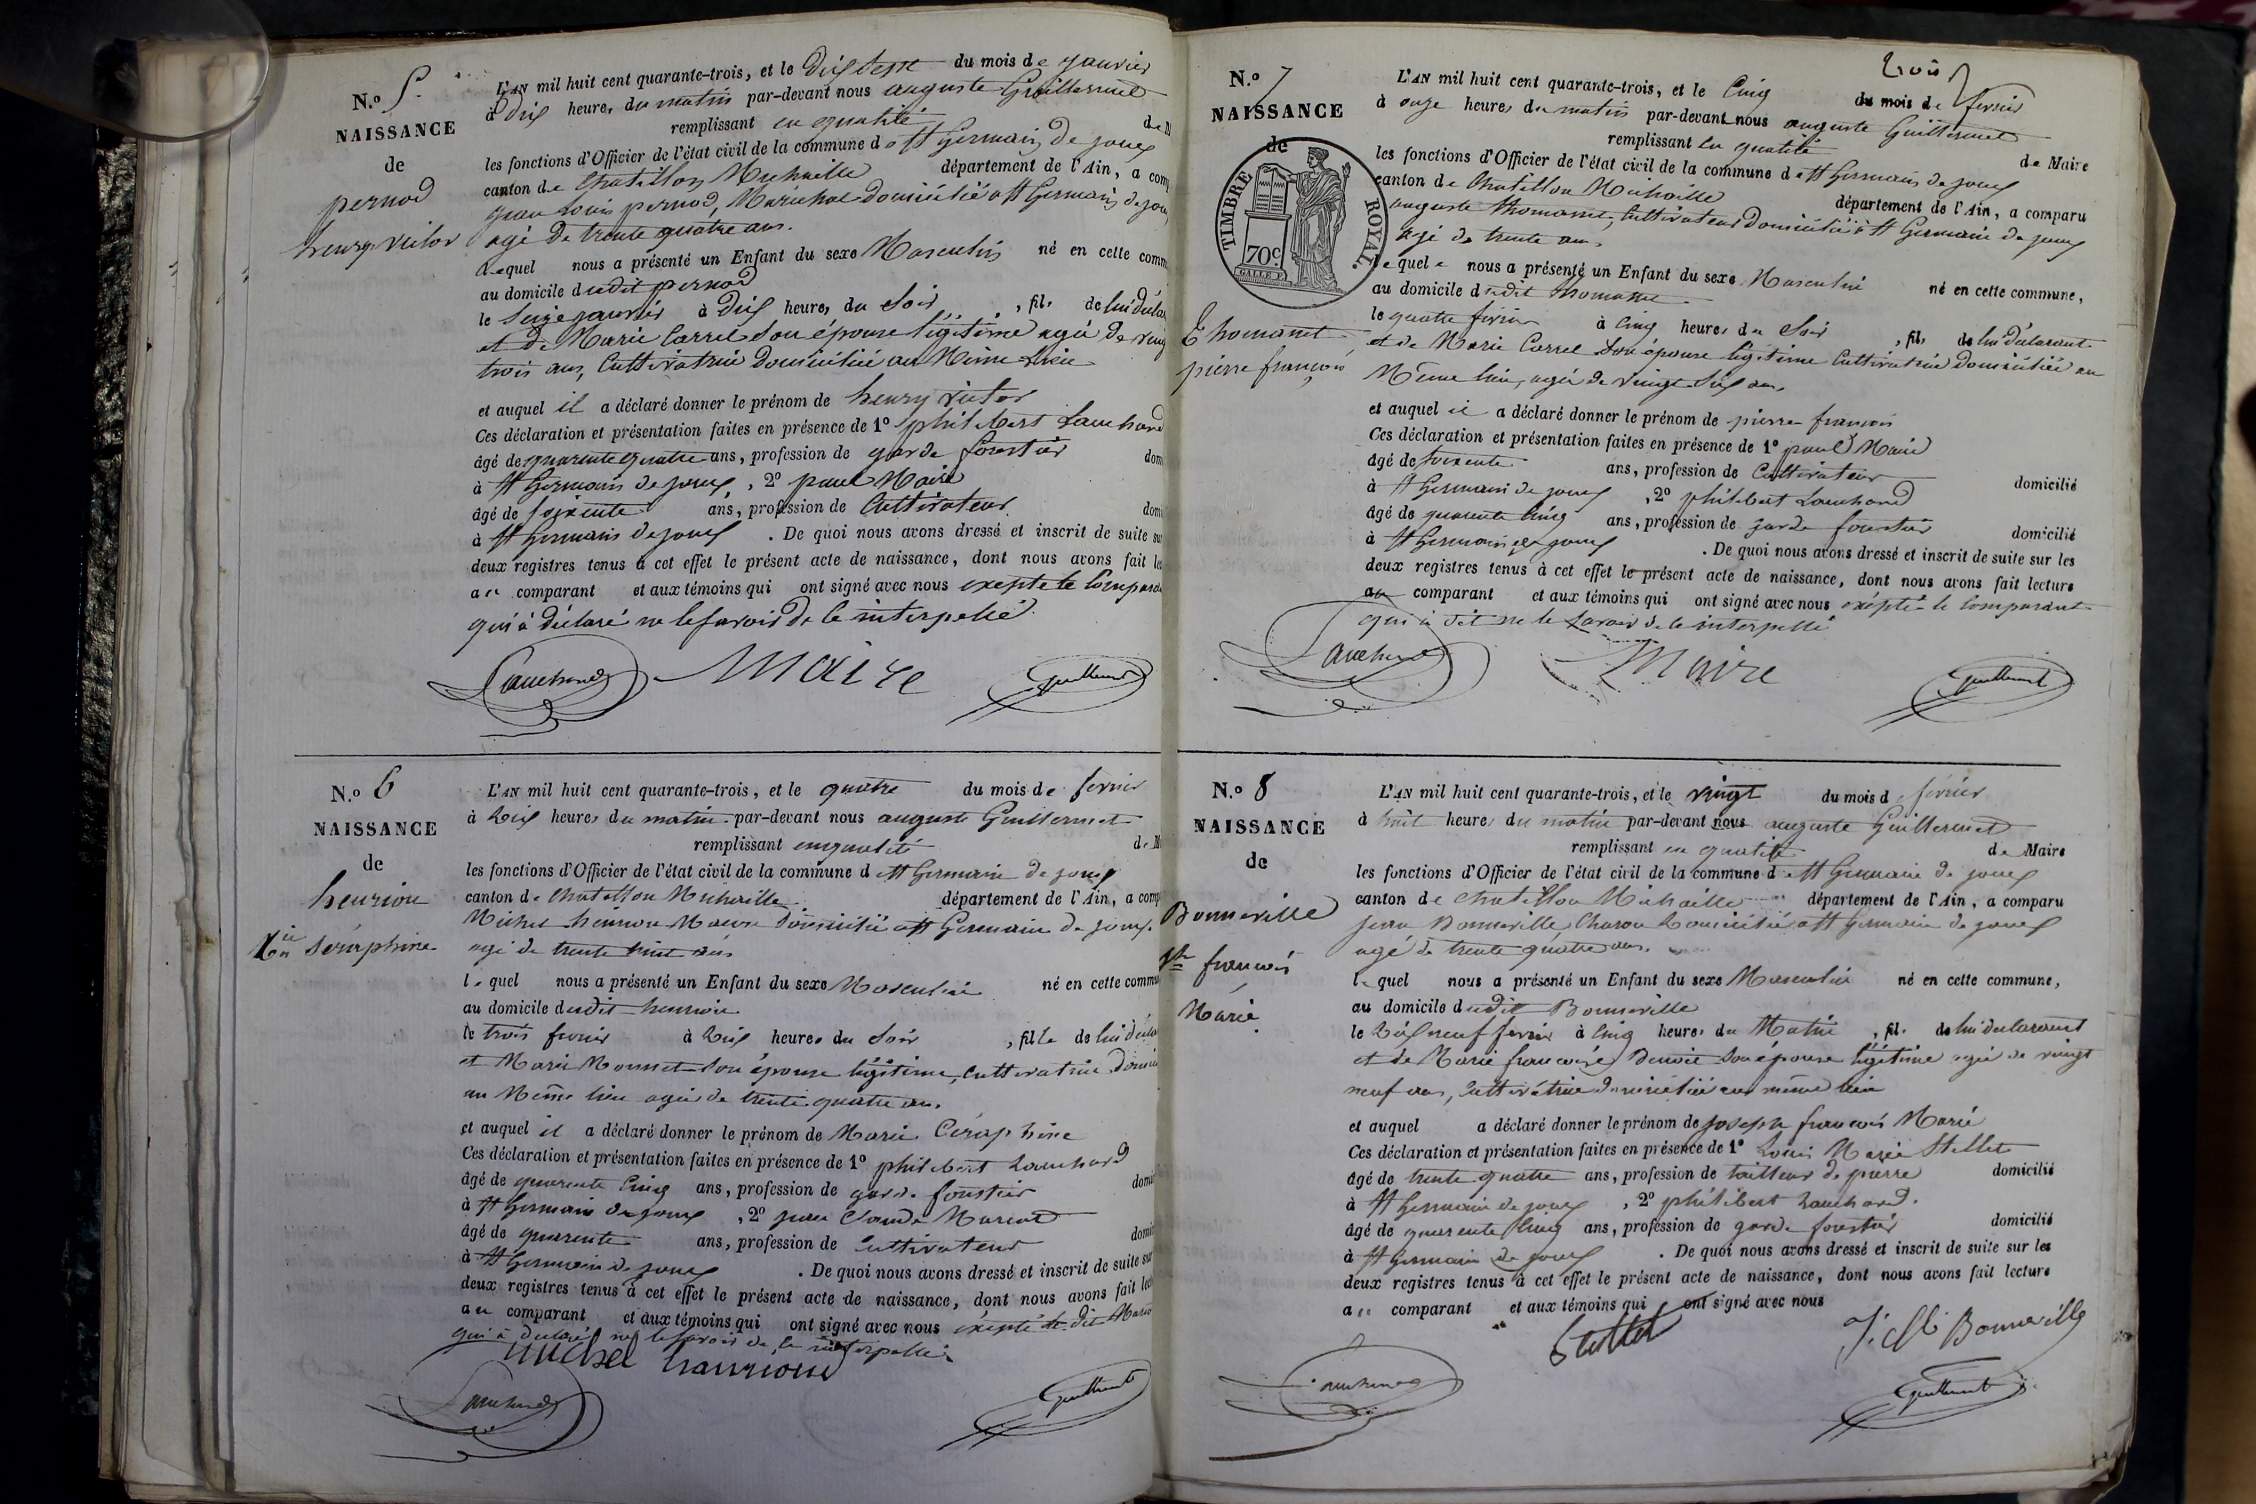 N.º 5.
NAISSANCE
de
pernod
henry victor
L'AN mil huit cent quarante-trois, et le dix sept du mois de janvier
à dix heures du matin par-devant nous auguste Guillermet
remplissant en qualité de M
les fonctions d'Officier de l'état civil de la commune de St Germain de joux
canton de Chatillon Michaille département de l'Ain, a comp
jean Louis pernod, Maréchal domicilié a St Germain de joux
agé de trente quatre ans.
Lequel nous a présenté un Enfant du sexe Masculin né en cette comm
au domicile dudit pernod
le seize janvier à dix heures du soir, fils de lui déclar
et de Marie Carrel son épouse légitime agée de vingt
trois ans, Cultivatrice domiciliée au Même Lieu
et auquel il a déclaré donner le prénom de henry victor
Ces déclaration et présentation faites en présence de 1º philibert Lanchard
âgé de quarente quatre ans, profession de garde forestier dom
à St Germain de joux, 2º paul Maire
âgé de soixente ans, profession de Cultivateur dom
à St Germain de joux. De quoi nous avons dressé et inscrit de suite su
deux registres tenus à cet effet le présent acte de naissance, dont nous avons fait lec
au comparant et aux témoins qui ont signé avec nous exepté le Comparant
qui à déclaré ne le savoir de ce interpellé.
Lanchard Maire Guillermet
N.º 6
NAISSANCE
de
henrion
Mie séraphine
L'AN mil huit cent quarante-trois, et le quatre du mois de fevrier
à dix heures du matin par-devant nous auguste Guillermet
remplissant en qualité de M
les fonctions d'Officier de l'état civil de la commune de St Germain de joux
canton de Chatillon Michaille département de l'Ain, a comp
Michel henrion Macon domicilié a St Germain de joux
agé de trente huit ans
lequel nous a présenté un Enfant du sexe Masculin né en cette commu
au domicile dudit henrion
le trois fevrier à dix heures du soir, fille de lui déclar
et Marie Monnet son épouse légitime, cultivatrice domici
au Même lieu agée de trente quatre ans.
et auquel il a déclaré donner le prénom de Marie Céraphine
Ces déclaration et présentation faites en présence de 1º philibert Lanchard
âgé de quarente cinq ans, profession de garde forestier domi
à St Germain de joux, 2º jean Claude Marion
âgé de quarente ans, profession de cultivateur domi
à St Germain de joux. De quoi nous avons dressé et inscrit de suite sur
deux registres tenus à cet effet le présent acte de naissance, dont nous avons fait lec
au comparant et aux témoins qui ont signé avec nous exepté le dit
qui à déclaré ne le savoir de ce interpellé.
michel
Lanchard Guillermet
trois
N.º 7
NAISSANCE
de
TIMBRE ROYAL.
70c.
GALLE F.
Thomasset
pierre françois
L'AN mil huit cent quarante-trois, et le Cinq du mois de fevrier
à onze heures du matin par-devant nous auguste Guillermet
remplissant en qualité de Maire
les fonctions d'Officier de l'état civil de la commune de St Germain de joux
canton de Chatillon Michaille département de l'Ain, a comparu
auguste thomasset, Cultivateur domicilié à St Germain de joux
agé de trente ans.
lequel nous a présenté un Enfant du sexe Masculin né en cette commune,
au domicile dudit thomasset
le quatre fevrier à cinq heures du soir, fils de lui déclarant
et de Marie Carrel son épouse légitime Cultivatrice domiciliée au
Même lieu, agée de vingt six ans.
et auquel il a déclaré donner le prénom de pierre françois
Ces déclaration et présentation faites en présence de 1º paul Maire
âgé de soixente ans, profession de Cultivateur domicilié
à St Germain de joux, 2º philibert Lanchard
âgé de quarente cinq ans, profession de garde forestier domicilié
à St Germain de joux. De quoi nous avons dressé et inscrit de suite sur les
deux registres tenus à cet effet le présent acte de naissance, dont nous avons fait lecture
au comparant et aux témoins qui ont signé avec nous exépté le Comparant
qui à dit ne le savoir de ce interpellé
Lanchard Maire Guillermet
N.º 8
NAISSANCE
de
Bonneville
Jh françois
Marie
L'AN mil huit cent quarante-trois, et le vingt du mois d fevrier
à huit heures du matin par-devant nous auguste Guillermet
remplissant en qualité de Maire
les fonctions d'Officier de l'état civil de la commune de St Germain de joux
canton de Chatillon Michaille département de l'Ain, a comparu
jean Bonneville, Charon domicilié a St Germain de joux
agé de trente quatre ans.
lequel nous a présenté un Enfant du sexe Masculin né en cette commune,
au domicile dudit Bonneville
le dix neuf fevrier à cinq heures du Matin, fils de lui declarant
et de Marie francoise Benoit son épouse légitime agée de vingt
neuf ans, cultivatrice domiciliée au même lieu
et auquel a déclaré donner le prénom de joseph francois Marie
Ces déclaration et présentation faites en présence de 1º Louis Marie Stellet
âgé de trente quatre ans, profession de tailleur de pierre domicilié
à St Germain de joux, 2º philibert Lanchard.
âgé de quarente cinq ans, profession de garde forestier domicilié
à St Germain de joux. De quoi nous avons dressé et inscrit de suite sur les
deux registres tenus à cet effet le présent acte de naissance, dont nous avons fait lecture
au comparant et aux témoins qui ont signé avec nous
Stellet Bonneville
Lanchard Guillermet